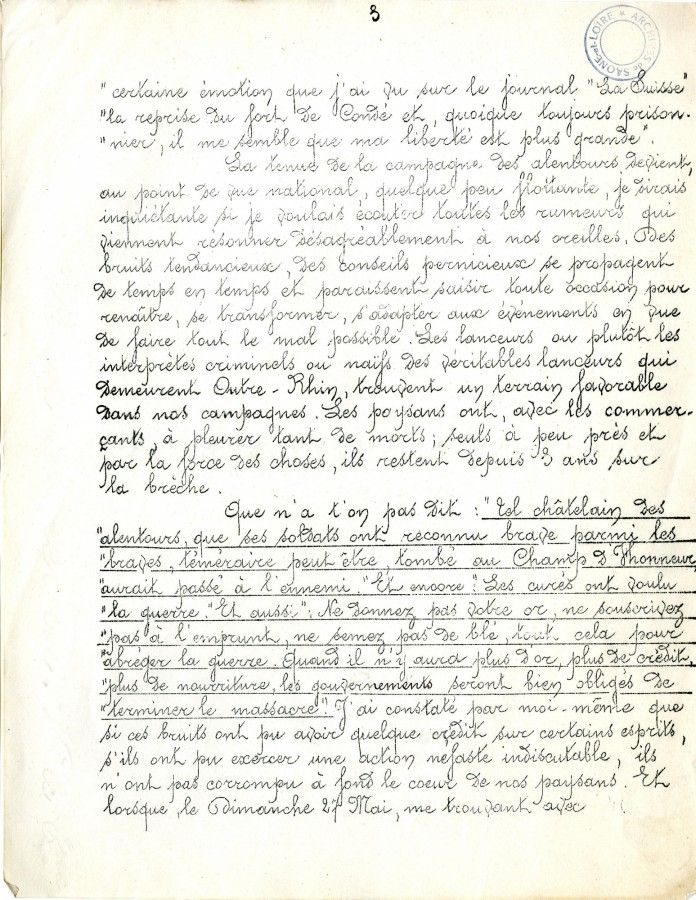 3
ARCHIVES de SAONE-et-LOIRE
"certaine émotion que j'ai vu sur le journal "La Suisse"
"la reprise du fort de Condé et, quoique toujours prison-
"nier, il me semble que ma liberté est plus grande".
La tenue de la campagne des alentours devient,
au point de vue national, quelque peu flottante, je dirais
inquiétante si je voulais écouter toutes les rumeurs qui
viennent résonner désagréablement à nos oreilles. Des
bruits tendancieux, des conseils pernicieux se propagent
de temps en temps et paraissent saisir toute occasion pour
renaître, se transformer, s'adapter aux événements en vue
de faire tout le mal possible. Les lanceurs ou plutôt les
interprètes criminels ou naïfs des véritables lanceurs qui
demeurent Outre-Rhin, trouvent un terrain favorable
dans nos campagnes. Les paysans ont, avec les commer-
çants, à pleurer tant de morts; seuls à peu près et
par la force des choses, ils restent depuis 3 ans sur
la brèche.
Que n'a t'on pas dit : "Tel châtelain des
"alentours, que ses soldats ont reconnu brave parmi les
"braves, téméraire peut être, tombé au Champ d'honneur
"aurait passé à l'ennemi. "Et encore": Les curés ont voulu
"la guerre. "Et aussi": Ne donnez pas votre or, ne souscrivez
"pas à l'emprunt, ne semez pas de blé, tout cela pour
"abréger la guerre. Quand il n'y aura plus d'or, plus de crédit,
"plus de nourriture, les gouvernements seront bien obligés de
"terminer le massacre". J'ai constaté par moi-même que
si ces bruits ont pu avoir quelque crédit sur certains esprits,
s'ils ont pu exercer une action néfaste indiscutable, ils
n'ont pas corrompu à fond le coeur de nos paysans. Et
lorsque, le Dimanche 27 Mai, me trouvant avec